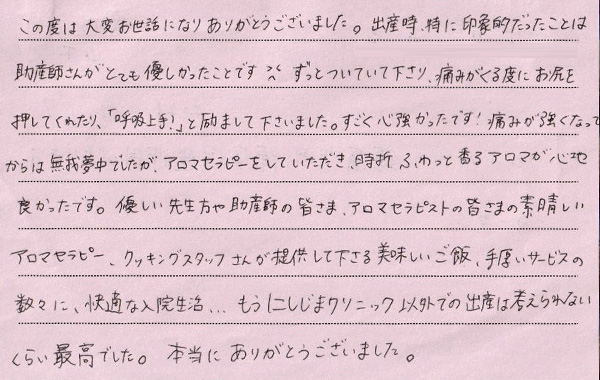 この度は大変お世話になりありがとうございました。出産時、特に印象的だったことは
助産師さんがとても優しかったことです^^ ずっとついていて下さり、痛みがくる度にお尻を
押してくれたり、「呼吸上手!」と励まして下さいました。すごく心強かったです!痛みが強くなって
からは無我夢中でしたが、アロマセラピーをしていただき、時折ふわっと香るアロマが心地
良かったです。優しい先生方や助産師の皆さま、アロマセラピストの皆さまの素晴しい
アロマセラピー、クッキングスタッフさんが提供して下さる美味しいご飯、手厚いサービスの
数々に、快適な入院生活... もうにしじまクリニック以外での出産は考えられない
くらい最高でした。本当にありがとうございました。